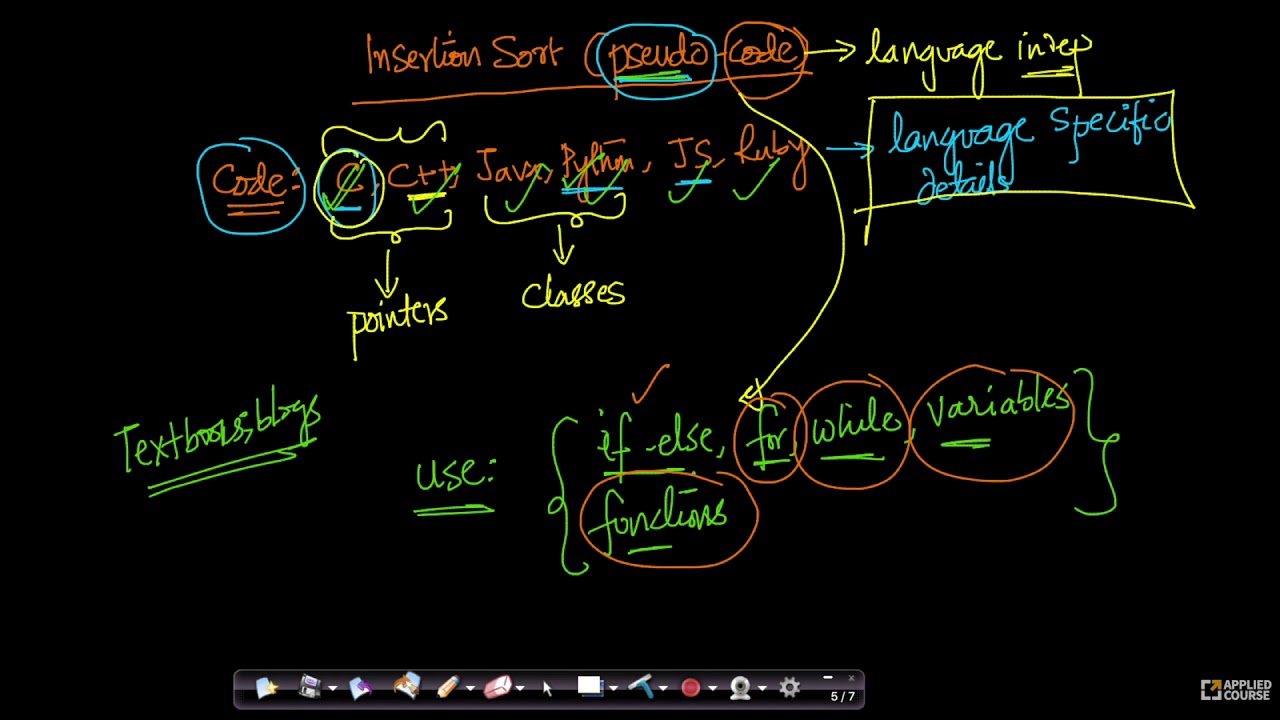 Insertion Sort (pseudo-code) → language indep
Code: C, C++, Java, Python, JS, Ruby → language specific
details
pointers
classes
Textbooks, blogs
use: { if-else, for, while, variables }
functions
5 / 7
APPLIED
COURSE